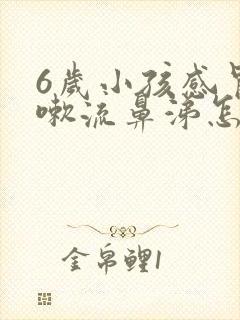 6歲小孩感冒
嗽流鼻涕怎
金帛鲤1